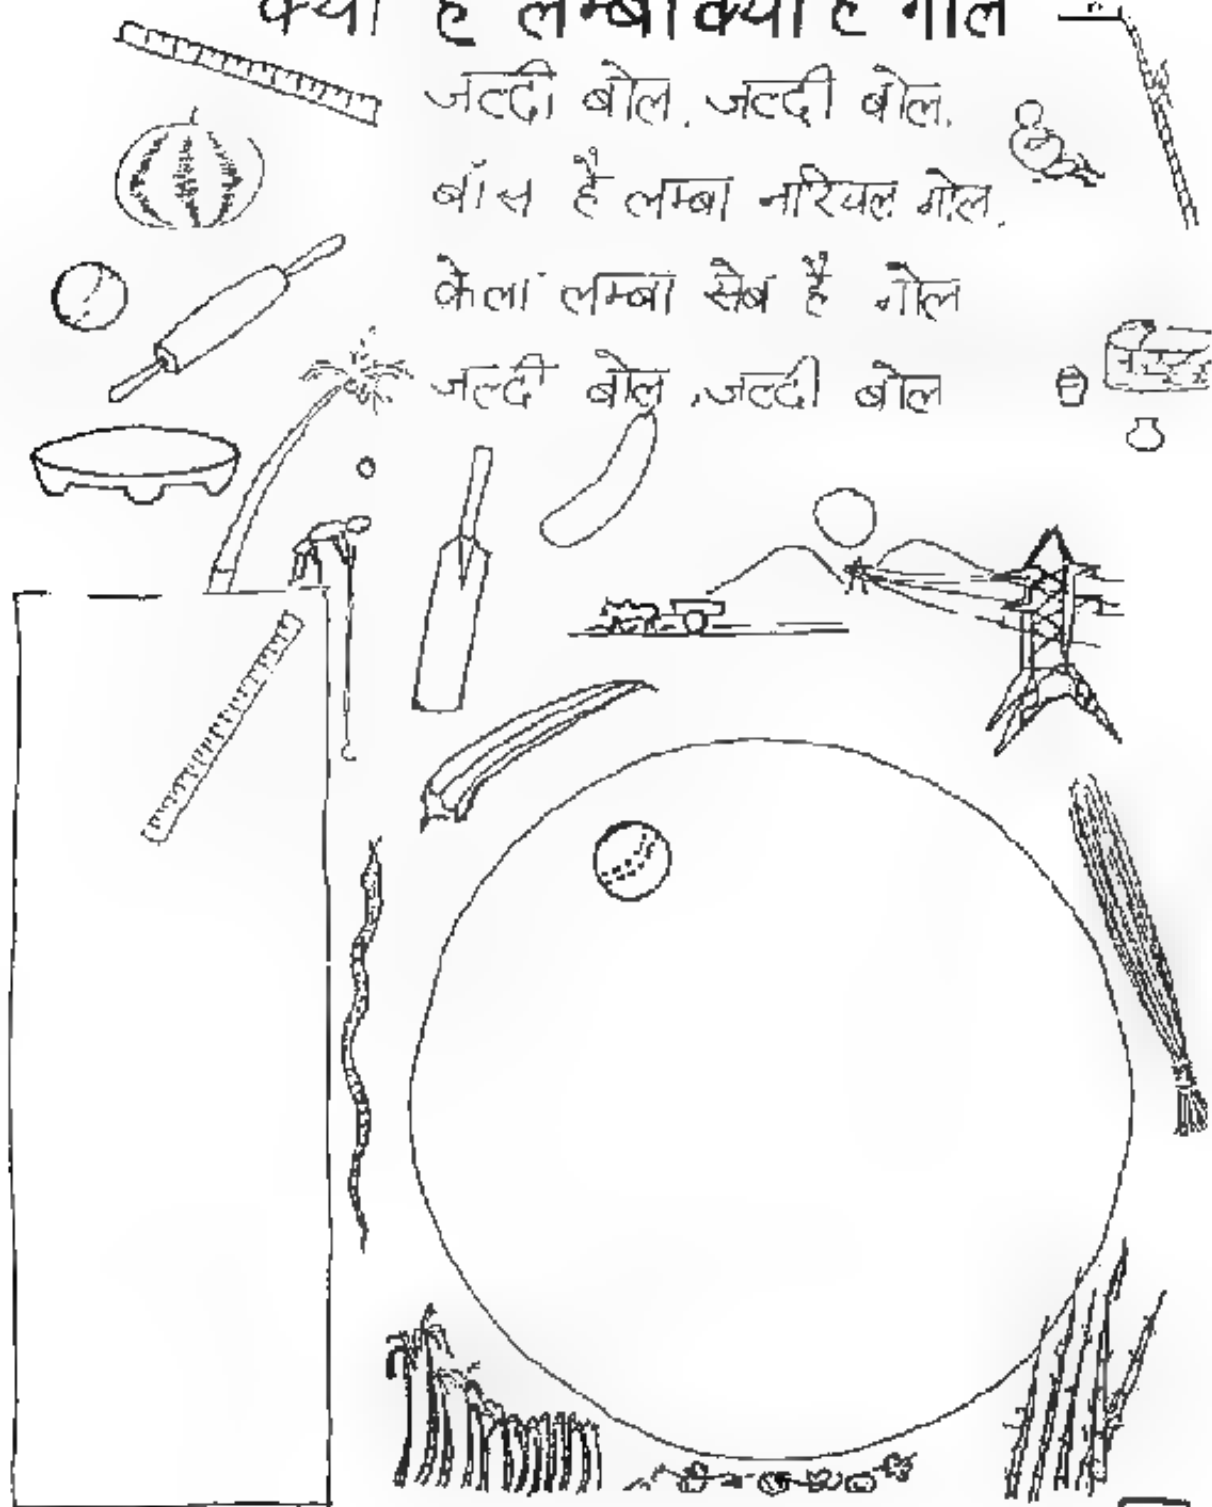 क्या है लम्बा क्या है गोल
जल्दी बोल, जल्दी बोल.
बाँस है लम्बा नारियल गोल.
केला लम्बा सेब है गोल
जल्दी बोल, जल्दी बोल